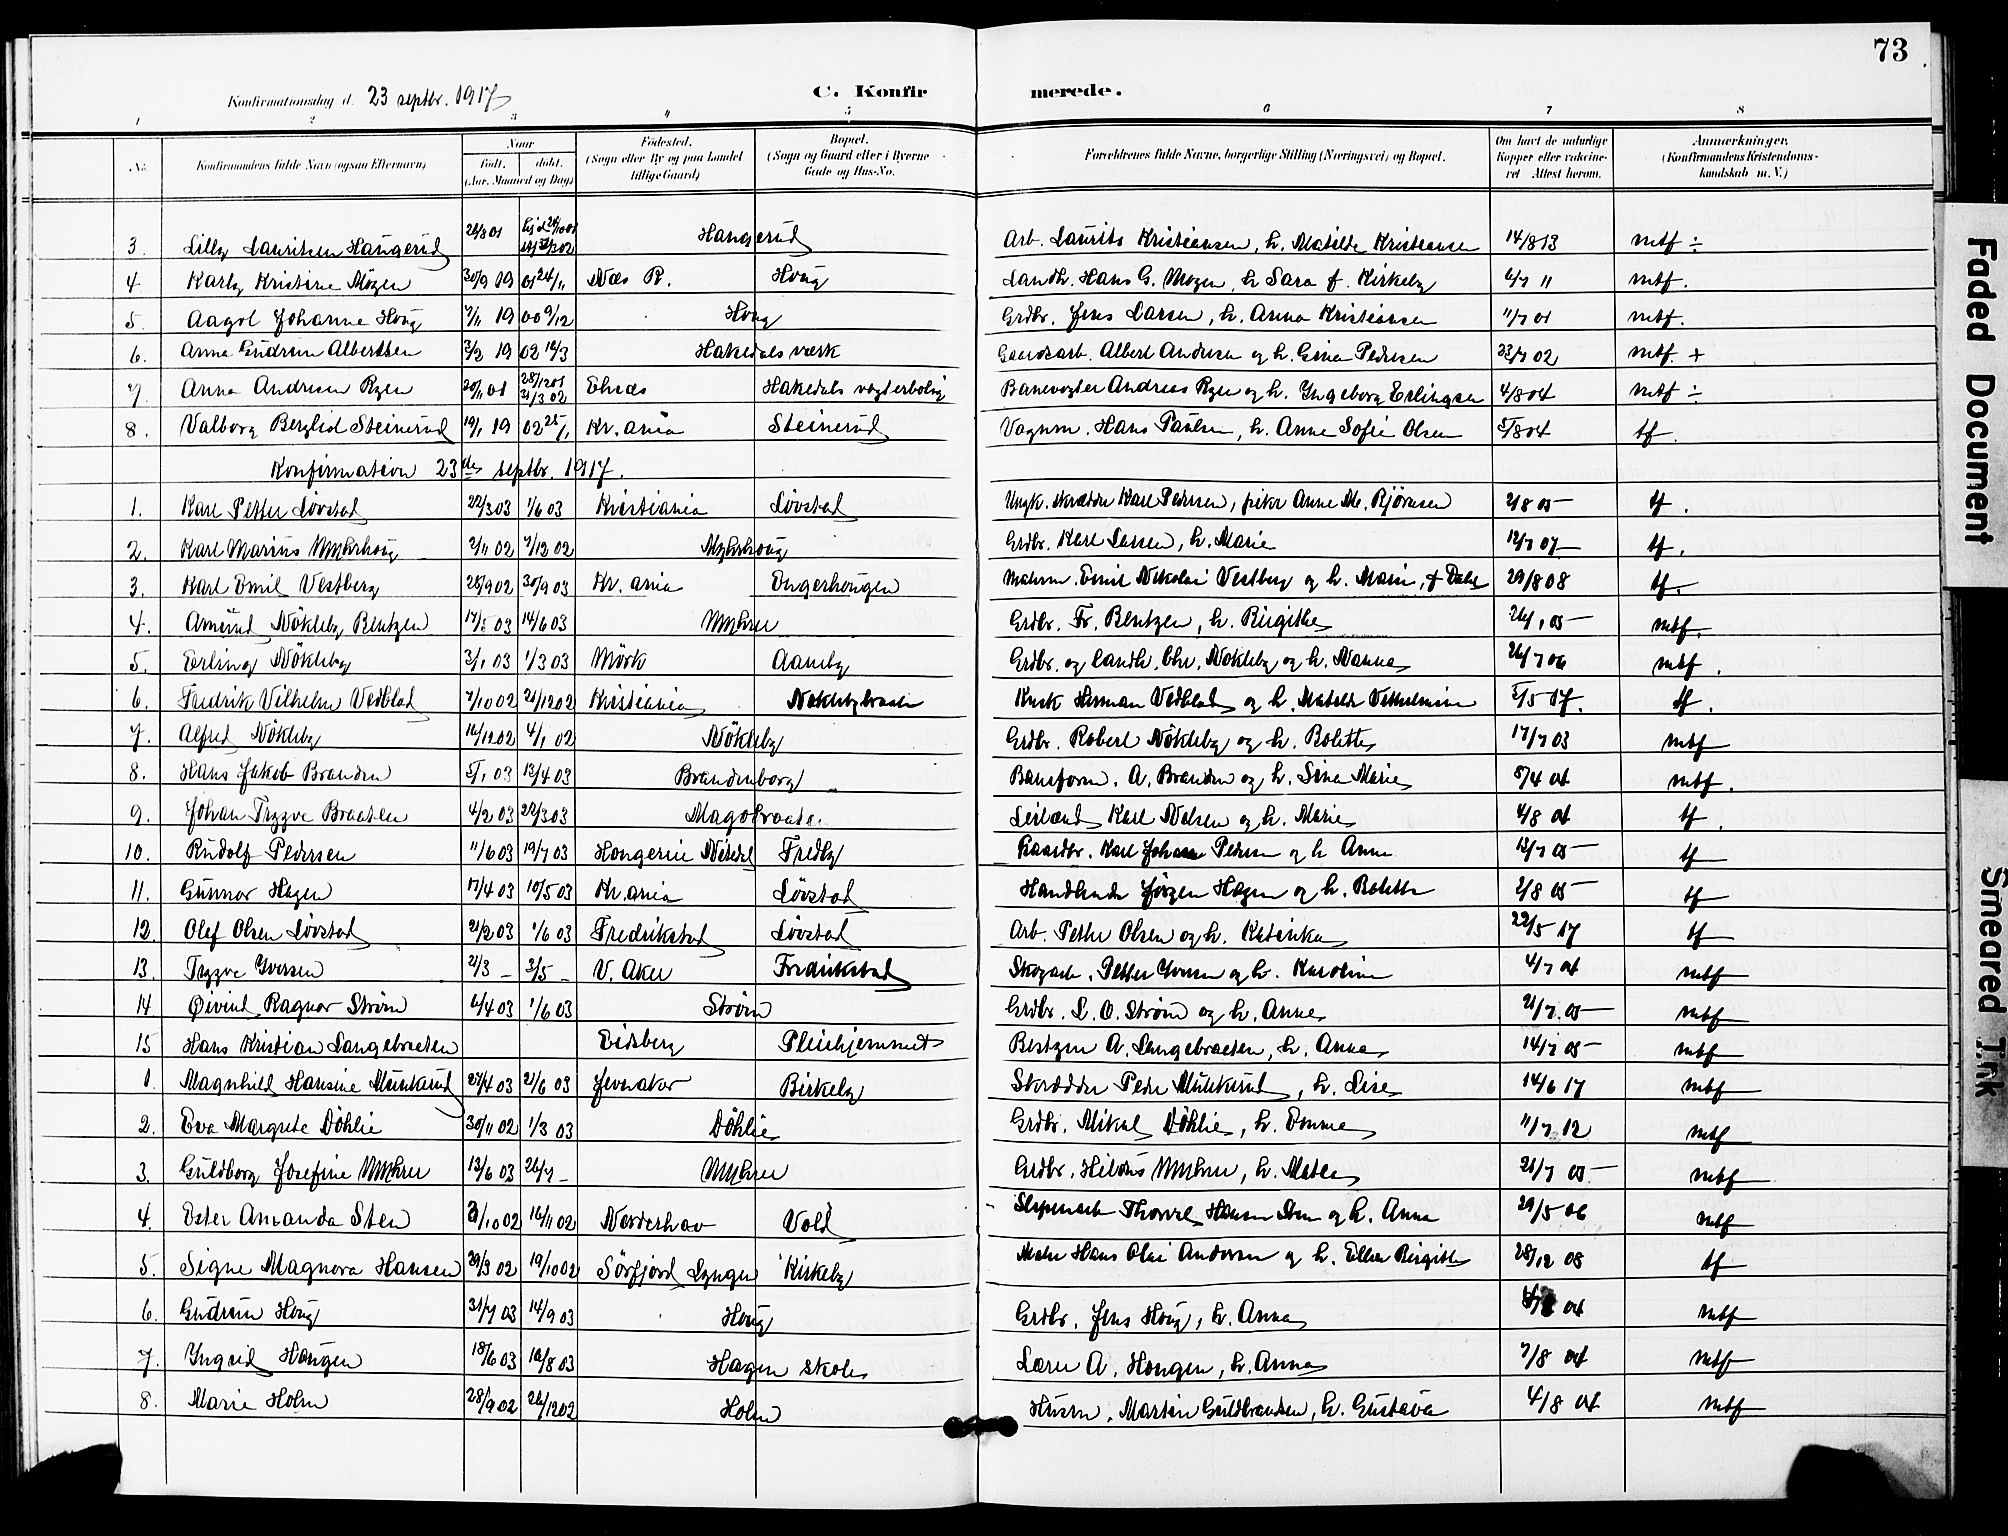 73
Konfirmationsdag d. 23 septbr. 1917
C. Konfirmerede.
1 2 3 4 5 6 7 8
No. Konfirmandens fulde Navn (ogsaa Efternavn) Naar født. døbt. (Aar, Maaned og Dag) Fødested. (Sogn eller By og paa Landet tillige Gaard) Bopæl. (Sogn og Gaard eller i Byerne Gade og Hus-No. Forældrenes fulde Navne, borgerlige Stilling (Næringsvei) og Bopæl. Om havt de naturlige Kopper eller vaccineret Attest herom. Anmærkninger. (Konfirmandens Kristendomskundskab m. V.)
3. Lilly Lauritsen Haugerud 26/8 01 Haugerud Arb. Laurits Kristiansen, h. Matilde Kristiansen 14/8 13 mtf ÷
4. Karly Kristine Mozen 30/9 19 01 24/11 Næs R. Houg Landh. Hans G. Mozen, h Sara f. Kirkeby 6/7 11 mtf.
5. Aagot Johanne Houg 7/11 19 00 9/12 Houg Grdbr. Jens Larsen, h. Anna Kristiansen 11/7 01 mtf.
6. Anna Gudrun Albertsen 3/2 19 02 16/3 Hakedals værk Gaardsarb. Albert Andersen og h. Gina Pedersen 23/7 02 mtf. +
7. Anna Andresen Ryen 20/11 01 28/12 01 31/3 02 Elnæs Hakedals vogterbolig Banevogter Andreas Ryen og h. Ingeborg Erlingsen 4/8 04 mtf ÷
8. Valborg Berglid Steinerud 19/1 19 02 25/1 Kr.ania Steinerud Vognm. Hans Paulsen, h. Anne Sofie Olsen 5/8 04 tf.
Konfirmation 23de septbr. 1917.
1. Karl Petter Løvstad 22/3 03 1/6 03 Kristiania Løvstad Ungk. skrædder Karl Pedersen, pike Anne Me. Bjørnsen 2/8 05 tf.
2. Karl Marius Myhrhoug 2/11 02 7/12 02 Myhrhoug Grdbr. Karl Larsen, h. Marie 12/7 07 tf.
3. Karl Emil Vestberg 28/9 02 30/9 03 Kr.ania Engerhougen Emil Nikolai Vestberg og h. Marie, f Dahl 29/8 08 tf.
4. Amund Nökleby Bentzen 17/5 03 14/6 03 Myhrer Grdbr. Fr. Bentzen, h. Birgithe 26/1 05 mtf.
5. Erling Nökleby 3/1 03 1/3 03 Mörk Aamby Grdbr. og landh. Chr. Nökleby og h. Nanna 26/7 06 mtf.
6. Fredrik Vilhelm Vedblad 7/10 02 21/12 02 Kristiania Nöklebybraaten Kusk Herman Vedblad og h. Matilde Vilhelmine 5/5 17. tf.
7. Alfred Nökleby 16/12 02 4/1 02 Nökleby Grdbr. Robert Nökleby og h. Bolette 17/7 03 mtf
8. Hans Jakob Branden 5/1 03 12/4 03 Brandenborg Baneform. A. Branden og h. Lina Marie 5/4 04 mtf.
9. Johan Tryggve Braaten 4/2 03 29/3 03 Magobraata. Leilænd. Karl Nilsen og h. Marie 4/8 04 tf.
10. Rudolf Pedersen 11/6 03 19/7 03 Hongerue Nitedal Fredly Gaardbr. Karl Johan Pedersen og h Anna 13/7 05 tf
11. Gunnar Hagen 17/4 03 10/5 03 Kr.ania Løvstad Handlende Jørgen Hagen og h. Bolette 2/8 05 tf
12. Olef Olsen Løvstad 21/2 03 1/6 03 Fredrikstad Løvstad Arb. Petter Olsen og h. Katinka 22/5 17 tf
13. Tryggve Iversen 2/3 – 3/5 – V. Aker Fredrikstad Skogarb. Petter Iversen og h. Karoline 4/7 04 mtf
14 Øivind Ragnar Strøm 6/4 03 1/6 03 Strøm Grdbr. L. O. Strøm og h. Anna 21/7 05 mtf
15 Hans Kristian Langebraaten Eidsberg Pleiehjemmet Bestyrer A. Langebraaten, h. Anna 14/7 05 mtf
1. Magnhild Hansine Munkerud 27/4 03 21/6 03 Jevnaker Birkeby Skrædder Peder Munkerud, h. Lise 14/6 17 mtf
2. Eva Margrete Döhlie 30/11 02 1/3 03 Döhlie Grdbr. Mikal Döhlie, h. Emma 11/7 12 mtf
3. Guldborg Josefine Myhrer 13/6 03 26/7 – Myhrer Grdbr. Hilmar Myhrer, h. Matea 21/7 05 mtf
4. Ester Amanda Sten 3/10 02 16/11 02 Norderhov Vold Thorval Hansen Sten og h. Anna 29/5 06 mtf
5. Signe Magnora Hansen 29/3 02 19/10 02 Sörfjord Lyngen Kirkeby Maler Hans Olai Andersen og h. Ellen Birgitte 28/12 08 tf
6. Gudrun Houg 31/7 03 14/9 03 Houg Grdbr. Jens Houg, h. Anna 04 mtf
7. Ingrid Haugen 18/6 03 16/8 03 Hagen skole Lærer A. Hougen, h. Anna 7/8 04 mtf
8. Marie Holm 28/9 02 26/12 02 Holm Husm. Martin Guldbrandsen, h. Gustava 4/8 04 mtf
Faded Document
Smeared Ink